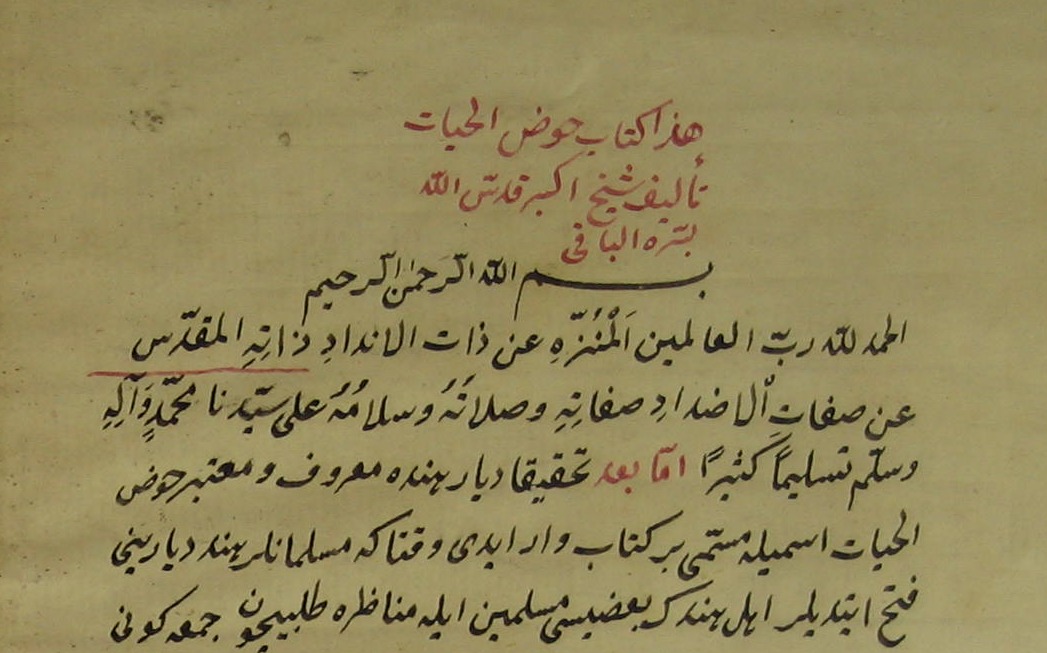 هذا كتاب حوض الحيات
تأليف شيخ اكبر قدّس الله
بسّره الباقى
بسم الله الرّحمن الرّحيم
الحمد لله ربّ العالمين اَلْمُنَزَّهِ عن ذات الاندادِ ذاتِهِ المقدّس
عن صفاتِ الاضدادِ صفاتِهِ وصلاتُهُ وسلامُهُ على سيّدنا محمّدٍ وَآلِهِ
وسلّم تسليماً كثيرًا امّا بعد تحقيقا ديار هنده معروف و معتبر حوض
الحيات اسميله مسمّى بر كتاب وار ايدى وقتاكه مسلمانلر هند ديارينى
فتح ايتديلر اهل هندك بعضيسى مسلمين ايله مناظره طلبيچون جمعه كونى